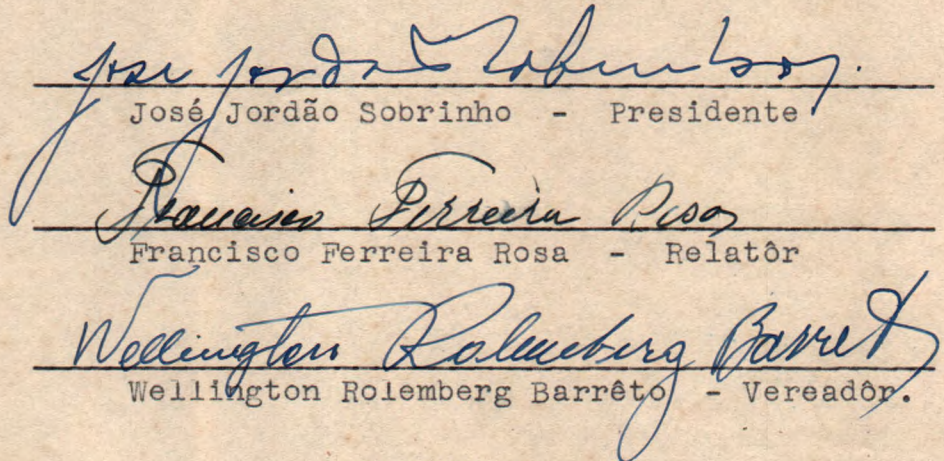 José Jordão Sobrinho
José Jordão Sobrinho - Presidente
Francisco Ferreira Rosa
Francisco Ferreira Rosa - Relatôr
Wellington Rolemberg Barreto
Wellington Rolemberg Barrêto - Vereadôr.